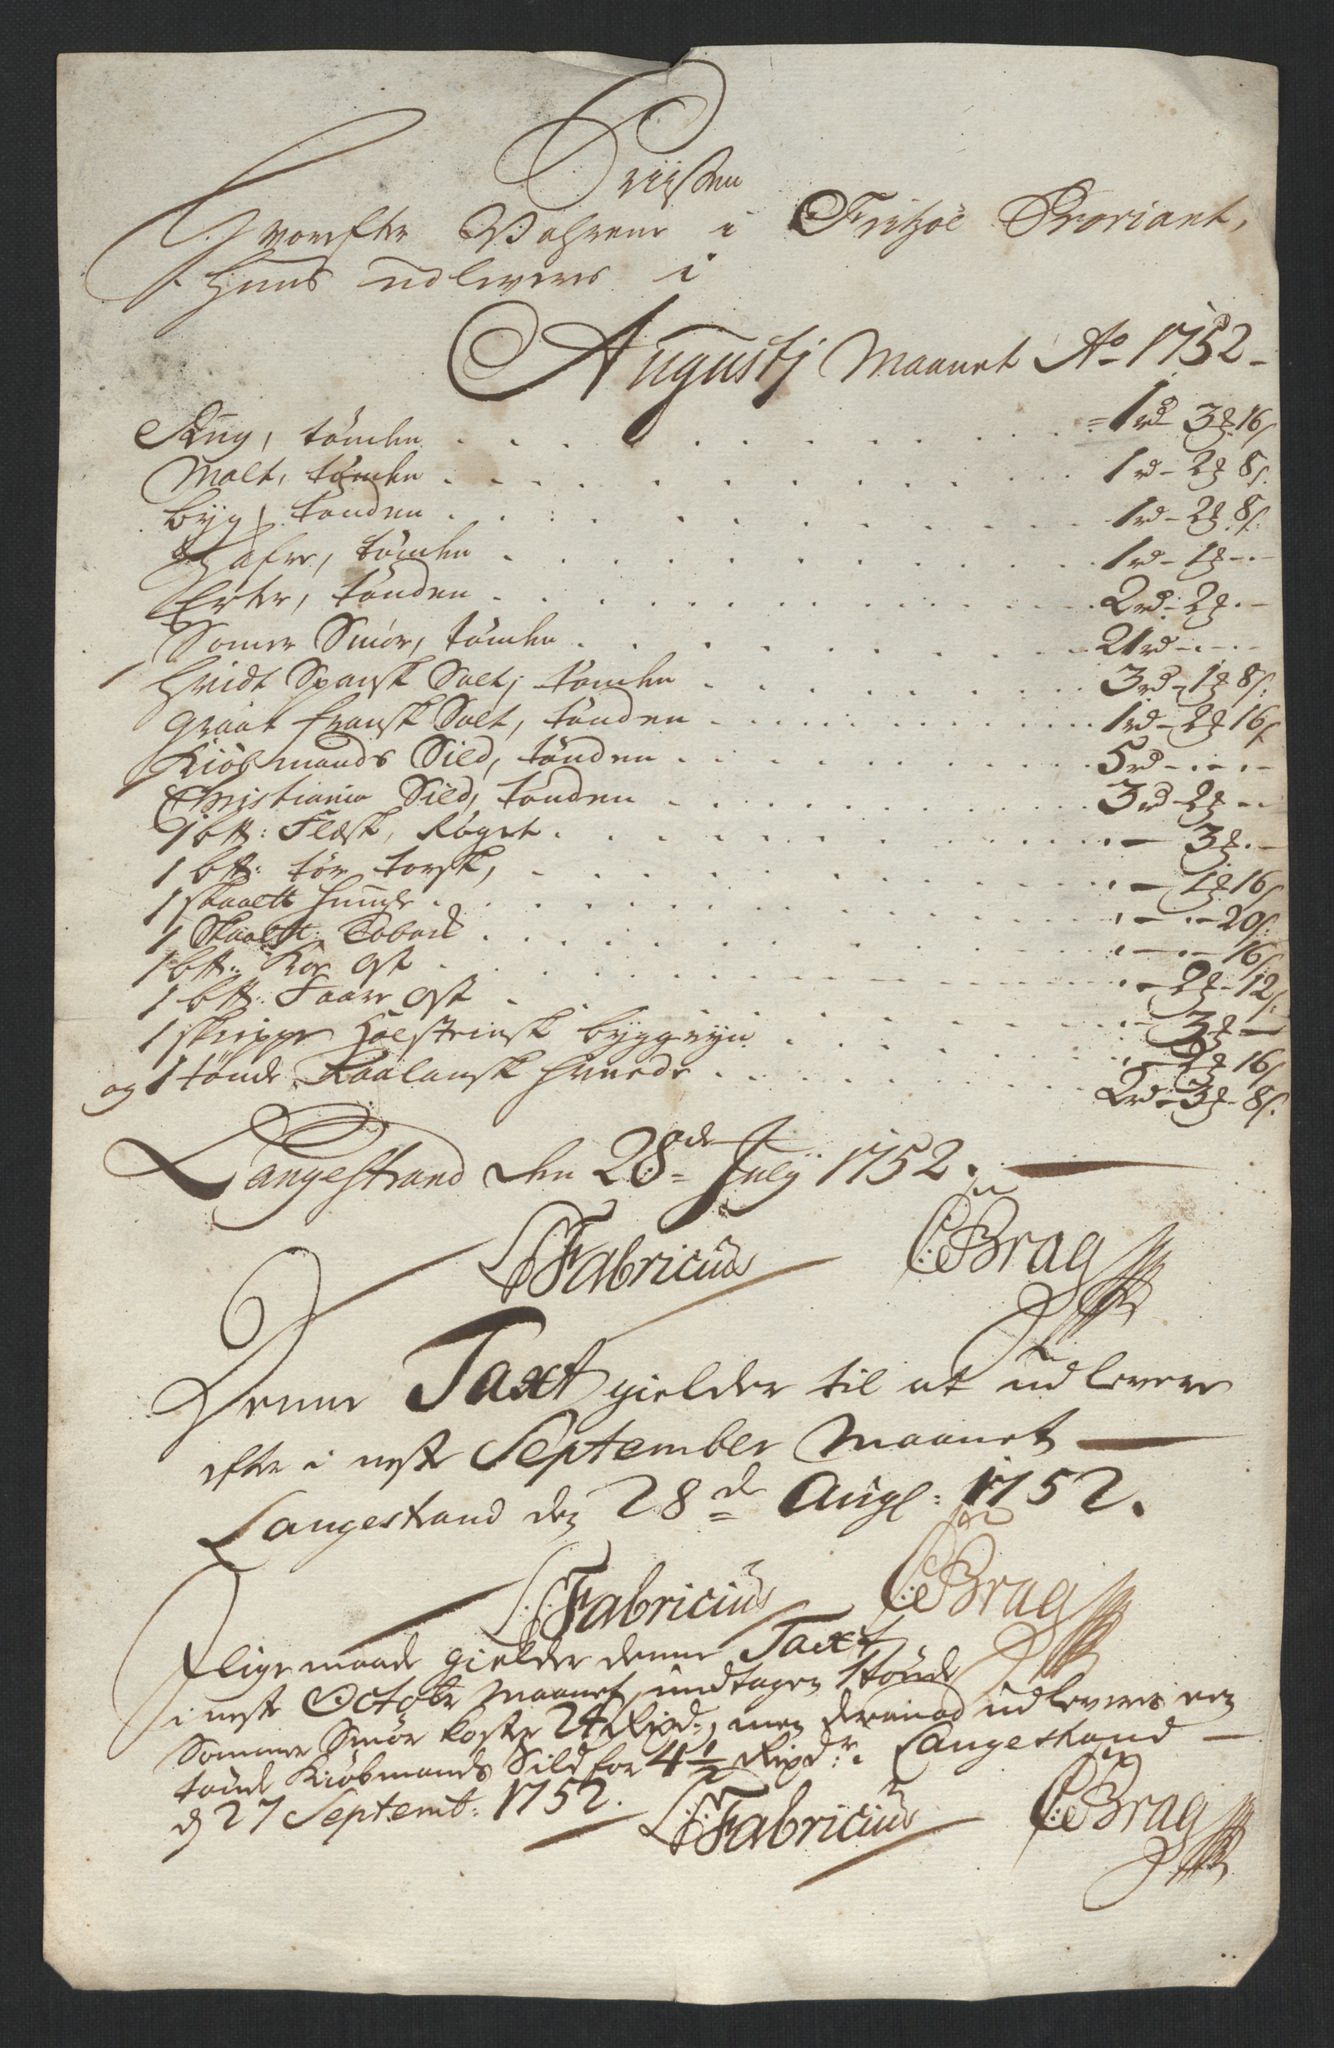 Priisen
Hvorefter Vahrene i Fritzøe Proviant,
Huus udleveres i
Augustj Maanet Ao 1752
Rug, tønden = 1 rd - 3 ꝑ 16 s
Malt, tønden 1 rd - 2 ꝑ 8 s:
byg, tønden 1 rd - 2 ꝑ 8 s:
Hafre, tønden 1 rd - 1 ꝑ - -
Erter, tønden 2 rd - 2 ꝑ - -
Somer Smør, tønden 21 rd - - -
Hvidt Spansk Salt, tønden 3 rd - 1 ꝑ 8 s:
graat fransk Salt, tønden 1 rd - 2 ꝑ 16 s
Kiøbmands Sild, tønden 5 rd - - -
Christiania Sild, tønden 3 rd - 2 ꝑ - -
1 btt: Flesk, Røget - 3 ꝑ -
1 btt: tør torsk, - 1 ꝑ 16 s
1 skaaltt humle - - 20 s:
1 Skaaltt: Toback - - 16 s
1 btt: Koe Ost - 2 ꝑ - 12 s:
1 btt: Faare Ost - 3 ꝑ -
1 skieppe Holsteinsk byggryn - 2 ꝑ 16 s
og 1 tønde Raalansk hvede 2 rd - 3 ꝑ - 8 s:
Langestrand den 28de Julÿ 1752.
Fabricius CBrag
Denne Taxt gielder til at udlevere
efter i neste September Maanet
Langestrand den 28de Augs: 1752.
Fabricius CBrag
Jligemaade gielder denne Taxt
i neste Octobr Maanet, undtagen 1 tønde
Sommer Smør koster 24 Rixdr, men derimod udleveres een
tønde Kiøbmands Sild for 4 1/2 Rixdr: Langestrand
d 27 Septembr: 1752.
Fabricius CBrag